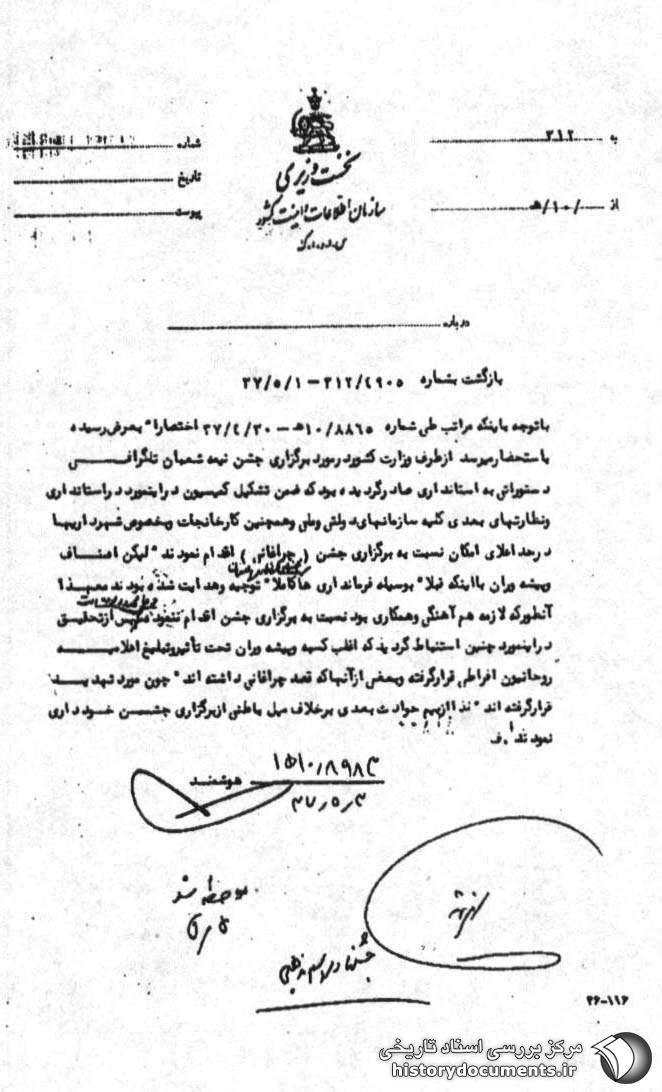 به ۳۱۲
از ۱۰/هـ
شماره
تاریخ
پیوست
نخست وزیری
سازمان اطلاعات و امنیت کشور
س.ا.و.ا.ک
درباره
بازگشت بشماره ۳۱۲/۴۹۰۵ - ۳۷/۵/۱
باتوجه باینکه مراتب طی شماره ۱۰/۸۸۶۵هـ - ۳۷/۴/۳۰ اختصارا" بعرض رسیده
باستحضار میرسد ازطرف وزارت کشور درمورد برگزاری جشن نیمه شعبان تلگرافی
دستوراتی به استانداری صادر گردیده بود که ضمن تشکیل کمیسیون دراینمورد در استانداری
ونظارتهای بعدی کلیه سازمانهای دولتی وملی وهمچنین کارخانجات وبخصوص شهرداریها
درحد اعلای امکان نسبت به برگزاری جشن (چراغانی) اقدام نمودند" لیکن اصناف
وپیشه وران بااینکه قبلا" بوسیله فرمانداری ها کاملا" توجیه وهدایت شده بودند معهذا
آنطورکه لازمه هم آهنگی وهمکاری بود نسبت به برگزاری جشن اقدام ننمودند پس ازتحقیق
دراینمورد چنین استنباط گردید که اغلب کسبه وپیشه وران تحت تأثیر وتبلیغ اعلامیه
روحانیون افراطی قرارگرفته وبعضی ازآنها که قصد چراغانی داشته اند" چون مورد تهدید
قرارگرفته اند" لذا ازبیم حوادث بعدی برخلاف میل باطنی ازبرگزاری جشن خودداری
نمودند. ف
هوشمند ۱۰/۸۹۸۳هـ
۳۷/۵/۳
ملاحظه شد
جشنها و مراسم مذهبی
۲۶-۱۱۶
مرکز بررسی اسناد تاریخی
historydocuments.ir